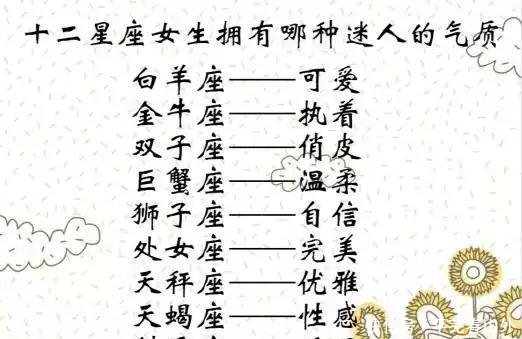 十二星座女生拥有哪种迷人的气质
白羊座——可爱
金牛座——执着
双子座——俏皮
巨蟹座——温柔
狮子座——自信
处女座——完美
天秤座——优雅
天蝎座——性感